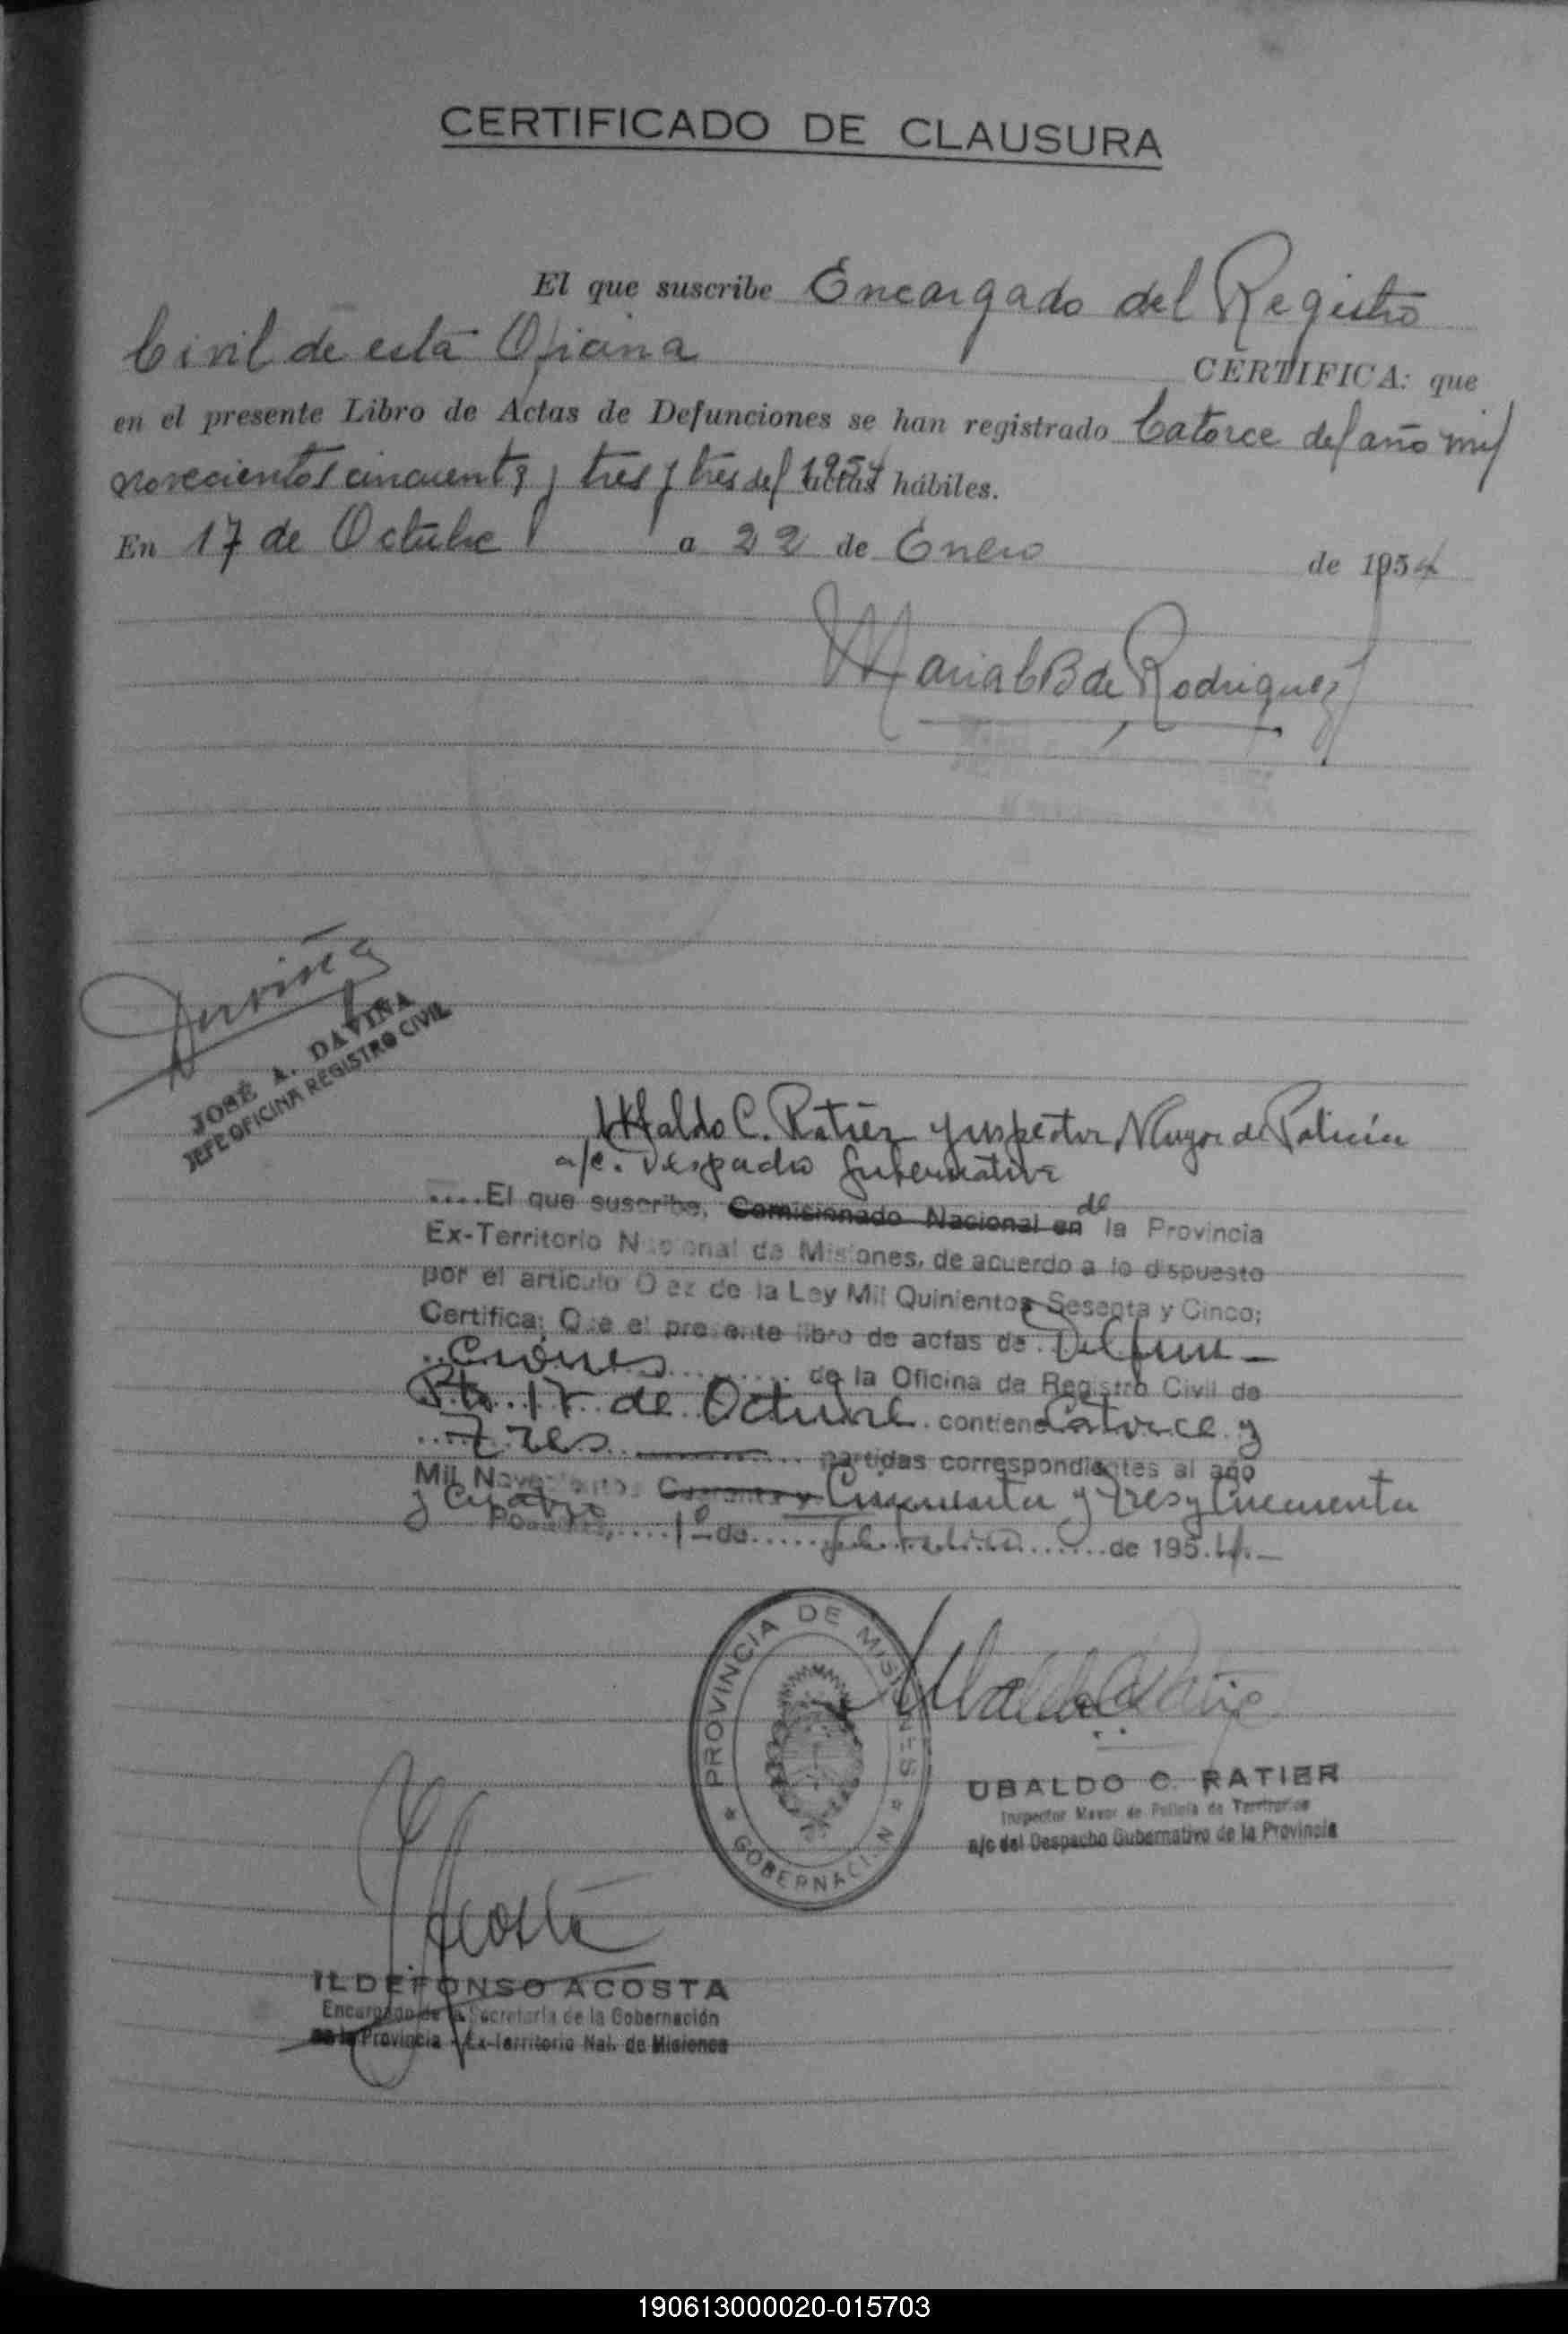 CERTIFICADO DE CLAUSURA
El que suscribe Encargado del Registro
Civil de esta Oficina CERTIFICA: que
en el presente Libro de Actas de Defunciones se han registrado Catorce del año mil
novecientos cincuenta y tres y tres del 1954 actas hábiles.
En 17 de Octubre a 22 de Enero de 1954
Maria C B de Rodriguez
Daviña
JOSÉ A. DAVIÑA
JEFE OFICINA REGISTRO CIVIL
Ubaldo C. Ratier Inspector Mayor de Policía
a/c. Despacho Gubernativo
....El que suscribe, Comisionado Nacional en de la Provincia
Ex-Territorio Nacional de Misiones, de acuerdo a lo dispuesto
por el artículo Diez de la Ley Mil Quinientos Sesenta y Cinco;
Certifica: Que el presente libro de actas de Defun-
ciones de la Oficina de Registro Civil de
Pto. 17 de Octubre contiene Catorce y
Tres partidas correspondientes al año
Mil Novecientos Cuarenta y Cincuenta y tres y Cincuenta
y Cuatro
Posadas, 1º de de 1954.-
PROVINCIA DE MISIONES
GOBERNACION
UBALDO C. RATIER
Inspector Mayor de Policía de Territorios
a/c del Despacho Gubernativo de la Provincia
Acosta
ILDEFONSO ACOSTA
Encargado de la Secretaría de la Gobernación
de la Provincia - Ex-Territorio Nal. de Misiones
190613000020-015703